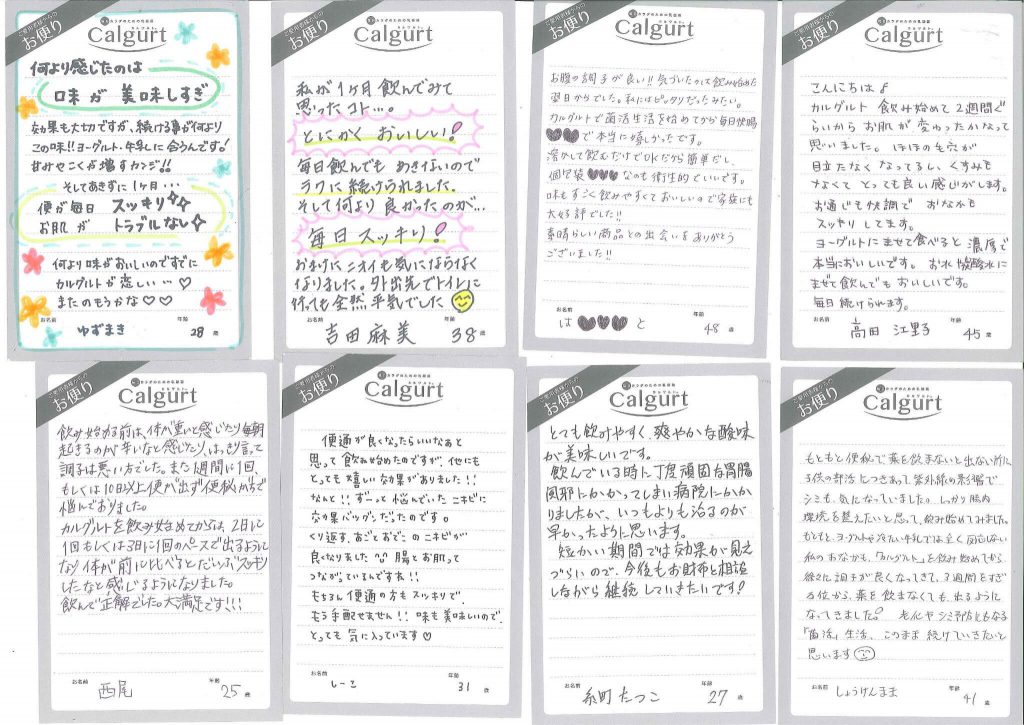 ご愛用者様からの
お便り
カラダのための乳酸菌
Calgurt
カルグルト
何より感じたのは
味が 美味しすぎ
効果も大切ですが、続ける事が何より
この味!!ヨーグルト・牛乳に合うんです!
甘みやこくが増すカンジ!!
そしてあきずに1ヶ月…
便が毎日 スッキリ
お肌が トラブルなし
何より味がおいしいのですでに
カルグルトが恋しい…♡
またのもうかな♡♡
お名前 ゆずまき 年齢 28 歳
ご愛用者様からの
お便り
カラダのための乳酸菌
Calgurt
カルグルト
私が1ヶ月飲んでみて
思ったコト…。
とにかく おいしい!
毎日飲んでも あきないので
ラクに続けられました。
そして何より良かったのが…
毎日スッキリ!
おまけにニオイも気にならなく
なりました。外出先でトイレに
行っても全然平気でした
お名前 吉田麻美 年齢 38 歳
ご愛用者様からの
お便り
カラダのための乳酸菌
Calgurt
カルグルト
お腹の調子が良い!!気づいたのは飲み始めた
翌日からでした。私にはピッタリだったみたい。
カルグルトで菌活生活を始めてから毎日快腸
♥♥で本当に嬉しかったです。
溶かして飲むだけでOKだから簡単だし、
個包装♥♥♥なのも衛生的といいです。
味もすごく飲みやすくておいしいので家族にも
大好評でした!!
素晴らしい商品との出会いをありがとう
ございました!!
お名前 は♥♥♥と 年齢 48 歳
ご愛用者様からの
お便り
カラダのための乳酸菌
Calgurt
カルグルト
こんにちは♪
カルグルト 飲み始めて2週間ぐ
らいから お肌が 変わったかなって
思いました。ほほの毛穴が
目立たなく なってるし、くすみも
なくて とっても良い感じがします。
お通じも快調で おなかも
スッキリしてます。
ヨーグルトにまぜて食べると 濃厚で
本当においしいです。お水や炭酸水に
まぜて飲んでも おいしいです。
毎日続けられます。
お名前 高田 江里子 年齢 45 歳
ご愛用者様からの
お便り
カラダのための乳酸菌
Calgurt
カルグルト
飲み始める前は、体が重いと感じたり毎朝
起きるのが辛いなと感じたり、はっきり言って
調子は悪い方でした。また1週間に1回、
もしくは10日以上便が出ず便秘がちで
悩んでおりました。
カルグルトを飲み始めてからは、2日に
1回もしくは3日に1回のペースで出るように
なり体が前に比べるとだいぶスッキリ
したなと感じるようになりました。
飲んで正解でした。大満足です!!!
お名前 西尾 年齢 25 歳
ご愛用者様からの
お便り
カラダのための乳酸菌
Calgurt
カルグルト
便通が良くなったらいいなぁと
思って飲み始めたのですが、他にも
とっても嬉しい効果がありました!!
なんと!!ずーっと悩んでいたニキビに
効果バツグンだったのです。
くり返す、あごとおでこのニキビが
良くなりました^^ 腸とお肌って
つながっているんですね!!
もちろん便通の方もスッキリで、
もう手離せません!!味も美味しいので、
とっても気に入っています♡
お名前 しーこ 年齢 31 歳
ご愛用者様からの
お便り
カラダのための乳酸菌
Calgurt
カルグルト
とても飲みやすく、爽やかな酸味
が美味しいです。
飲んでいる時に丁度頑固な胃腸
風邪にかかってしまい病院にかか
りましたが、いつもよりも治るのが
早かったように思います。
短かい期間では効果が見え
づらいので、今後もお財布と相談
しながら継続していきたいです!
お名前 糸町たつこ 年齢 27 歳
ご愛用者様からの
お便り
カラダのための乳酸菌
Calgurt
カルグルト
もともと便秘で薬を飲まないと出ない所に
子供の部活につきあって紫外線の影響で
シミも気になっていました。しっかり腸内
環境を整えたいと思って、飲み始めてみました。
もともとヨーグルトや冷たい牛乳では全く反応しない
私のおなかも、「カルグルト」を飲み始めてから
徐々に調子が良くなってきて、3週間をすぎ
る位から、薬を飲まなくても、出るように
なってきました。老化やシミ予防にもなる
「菌活」生活、このまま続けていきたいと
思います
お名前 しょうけんまま 年齢 41 歳